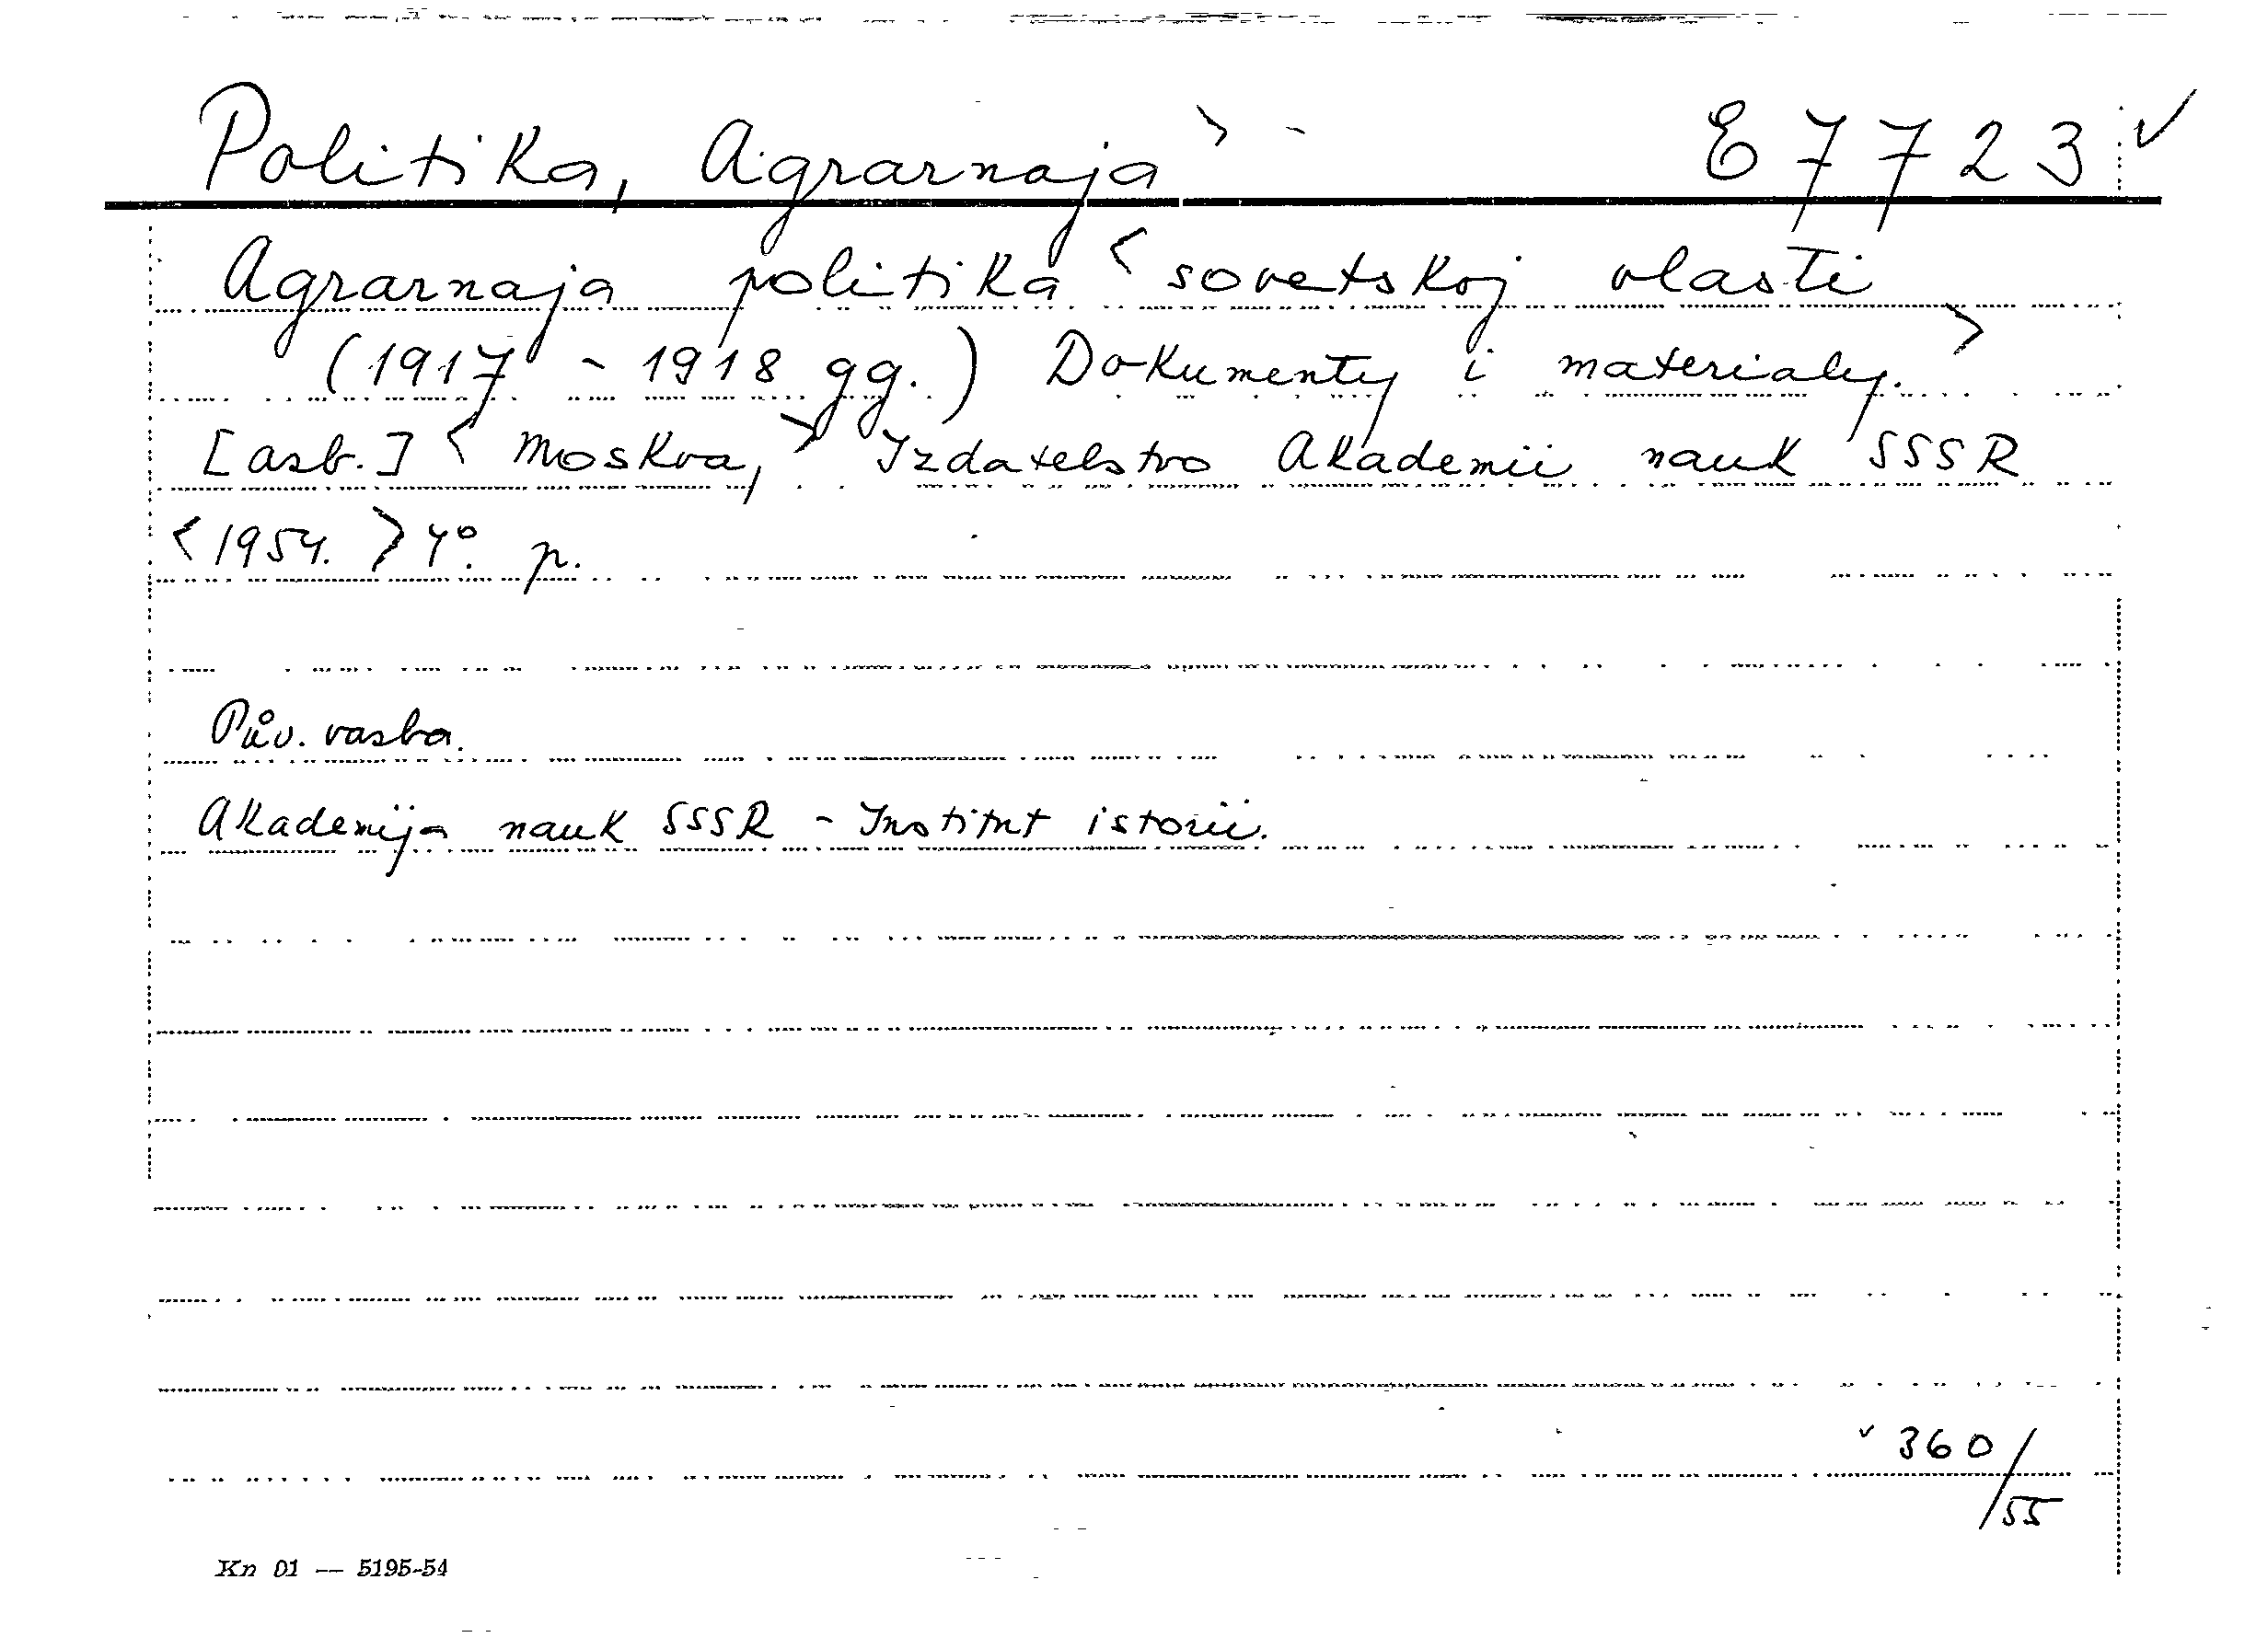 Politika, Agrarnaja > - E 7723 ✓
Agrarnaja politika < sovetskoj vlasti
(1917 - 1918 gg.) Dokumenty i materialy. >
[asb.] < Moskva, > Izdatelstvo Akademii nauk SSSR
<1954. > 4°. p.
Pův. vasba.
Akademija nauk SSSR - Institut istorii.
✓ 360/55
Kn 01 — 5195-54